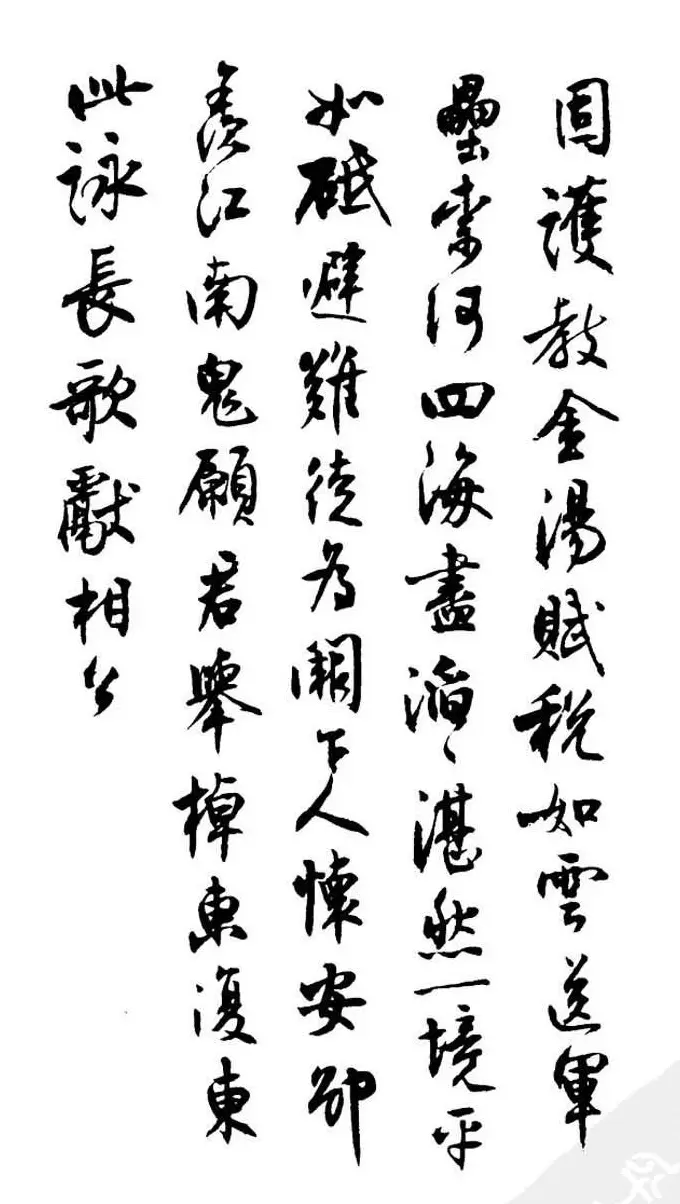 固護教金湯賦稅如雲送軍
壘柰何四海盡滔〻湛然一境平
如砥避難徒為闕下人懷安卻
羨江南鬼願君舉棹東復東
此詠長歌獻相公